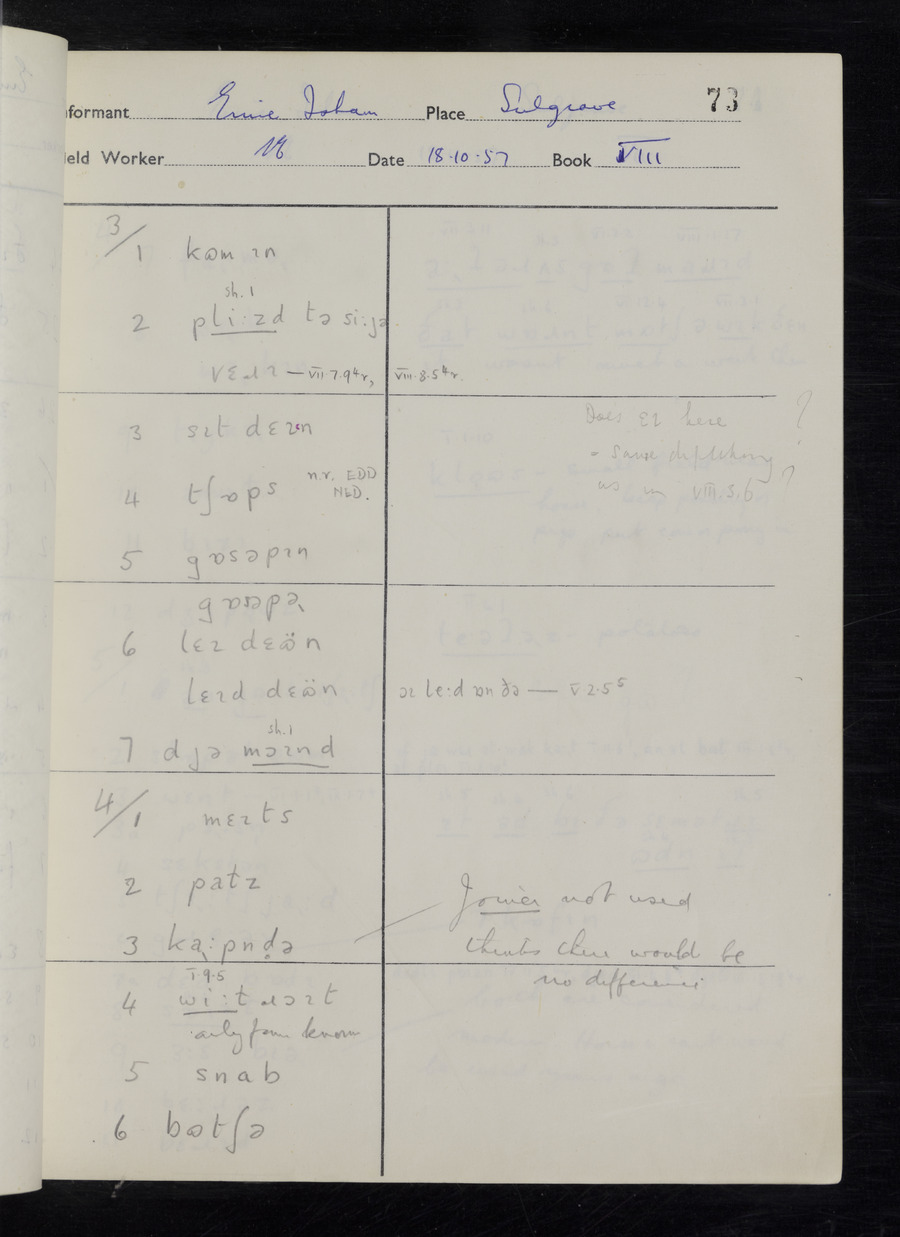 nformant Ernie Isham Place Sulgrave 73
ield Worker Date 18·10·57 Book VIII
3/1 kɷmɪn
sh.1
2 pli:zd tə si:jə
vɛɹɪ — VII·7.9⁴r, VIII·8·5⁴r.
3 sɪt dɛɪn
4 tʃɒps n.r. EDD
NED.
Does ɛɪ here ?
= same diphthong
as in VIII.5.6 ?
5 gɒsəpɪn
gɒsəpə
6 lɛɪ dɛɷ̈n
lɛɪd dɛɷ̈n ɔɪ le:d ɒn ðə — V 2·5⁵
sh.1
7 djə mɔɪnd
4/1 mɛɪts
2 patz
3 ka̢:pnd̩ə
Joiner not used
thinks there would be
no difference
I·9·5
4 wi:tɹɔɪt
only form known
5 snab
6 bɷtʃə